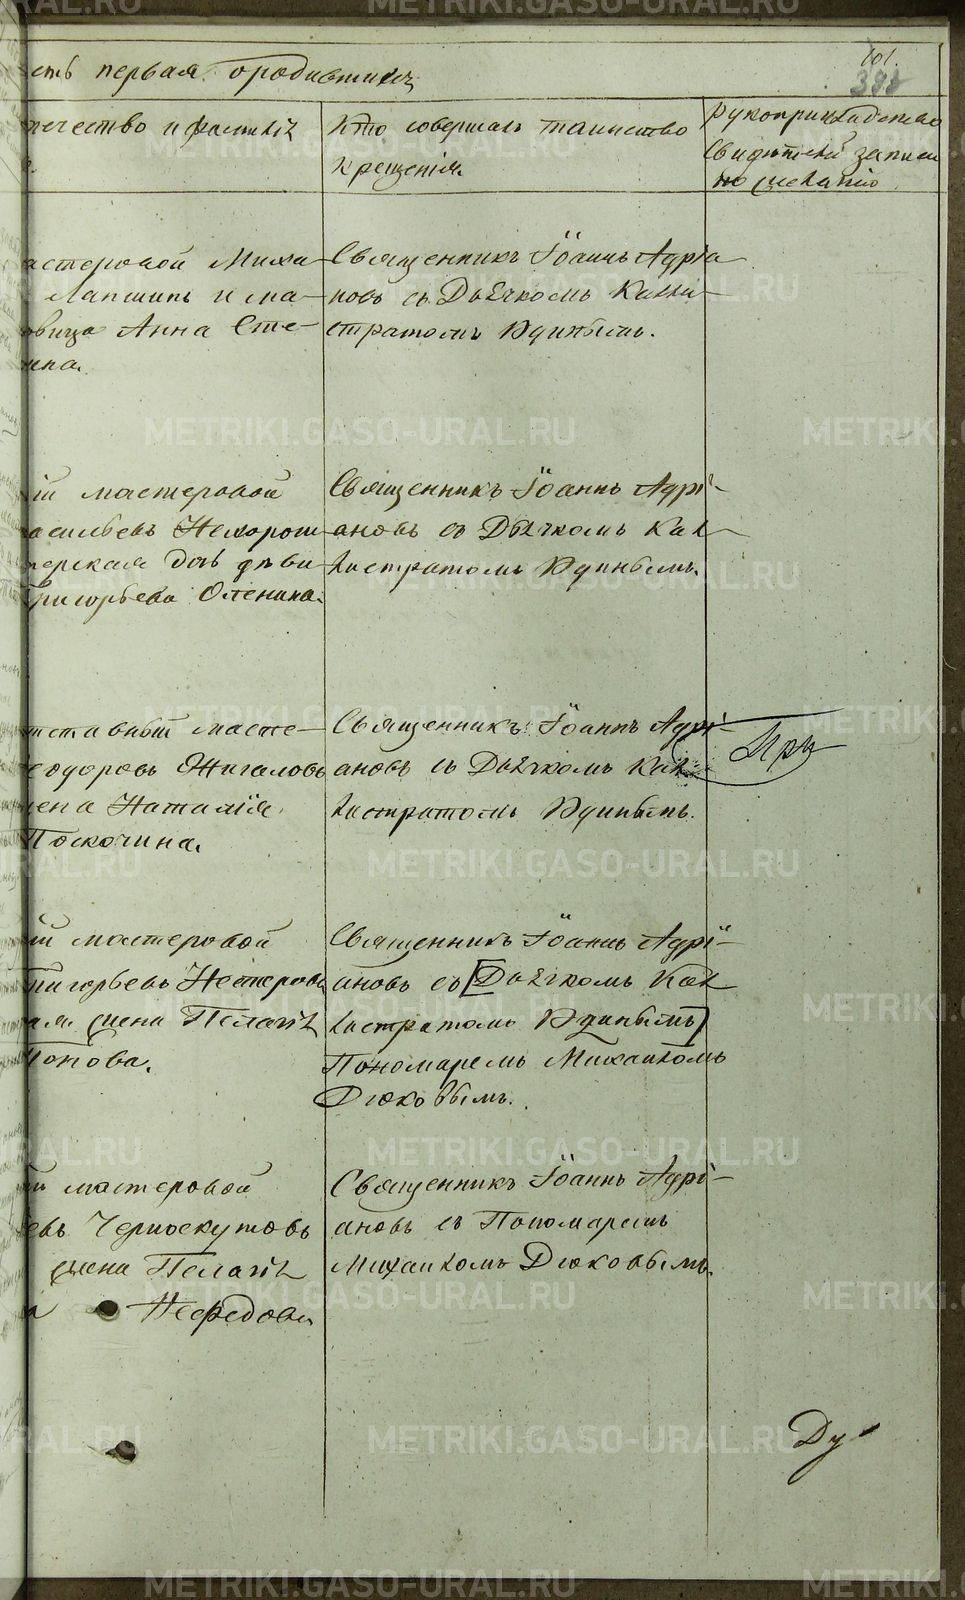 101.
388
сть первая о родившихъ
течество и фамилія
Кто совершалъ таинство
крещенія.
Рукоприкладство
свидѣтелей записи
по желанію
астеровой Миха-
Лапшинъ и та-
Анна Сте-
ина.
Священникъ Іоаннъ Адріа-
новъ съ Дьячкомъ Калли-
стратомъ Удинымъ.
ій мастеровой
асильевъ Нехорош-
дочь дѣви-
Григорьева Оленина.
Священникъ Іоаннъ Адрі-
ановъ съ Дьячкомъ Кал-
листратомъ Удинымъ.
тставный масте-
еодоровъ Жигаловъ
жена Наталія
Поскочина.
Священникъ Іоаннъ Адрі-
ановъ съ Дьячкомъ Кал-
листратомъ Удинымъ.
При
ій мастеровой
ригорьевъ Нетеровъ
ая жена Пелагія
Попова.
Священникъ Іоаннъ Адрі-
ановъ съ [Дьячкомъ Кал
листратомъ Удинымъ]
Пономаремъ Михаиломъ
Дюковымъ.
ій мастеровой
евъ Черноскутовъ
жена Пелагія
а Нефедова
Священникъ Іоаннъ Адрі-
ановъ съ Пономаремъ
Михаиломъ Дюковымъ.
Ду-
METRIKI.GASO-URAL.RU